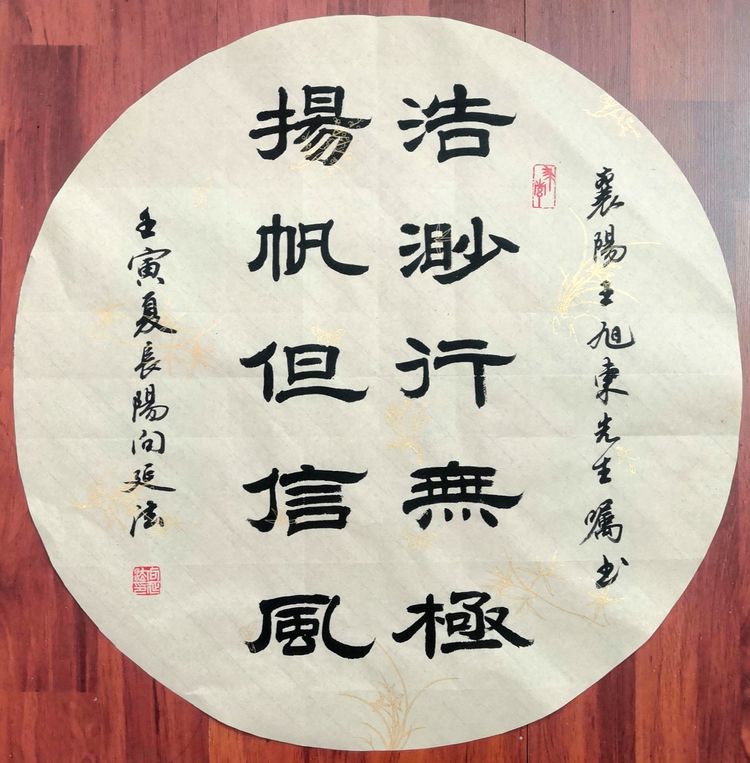 襄陽王旭東先生囑书
浩渺行無極
揚帆但信風
壬寅夏長陽向延法